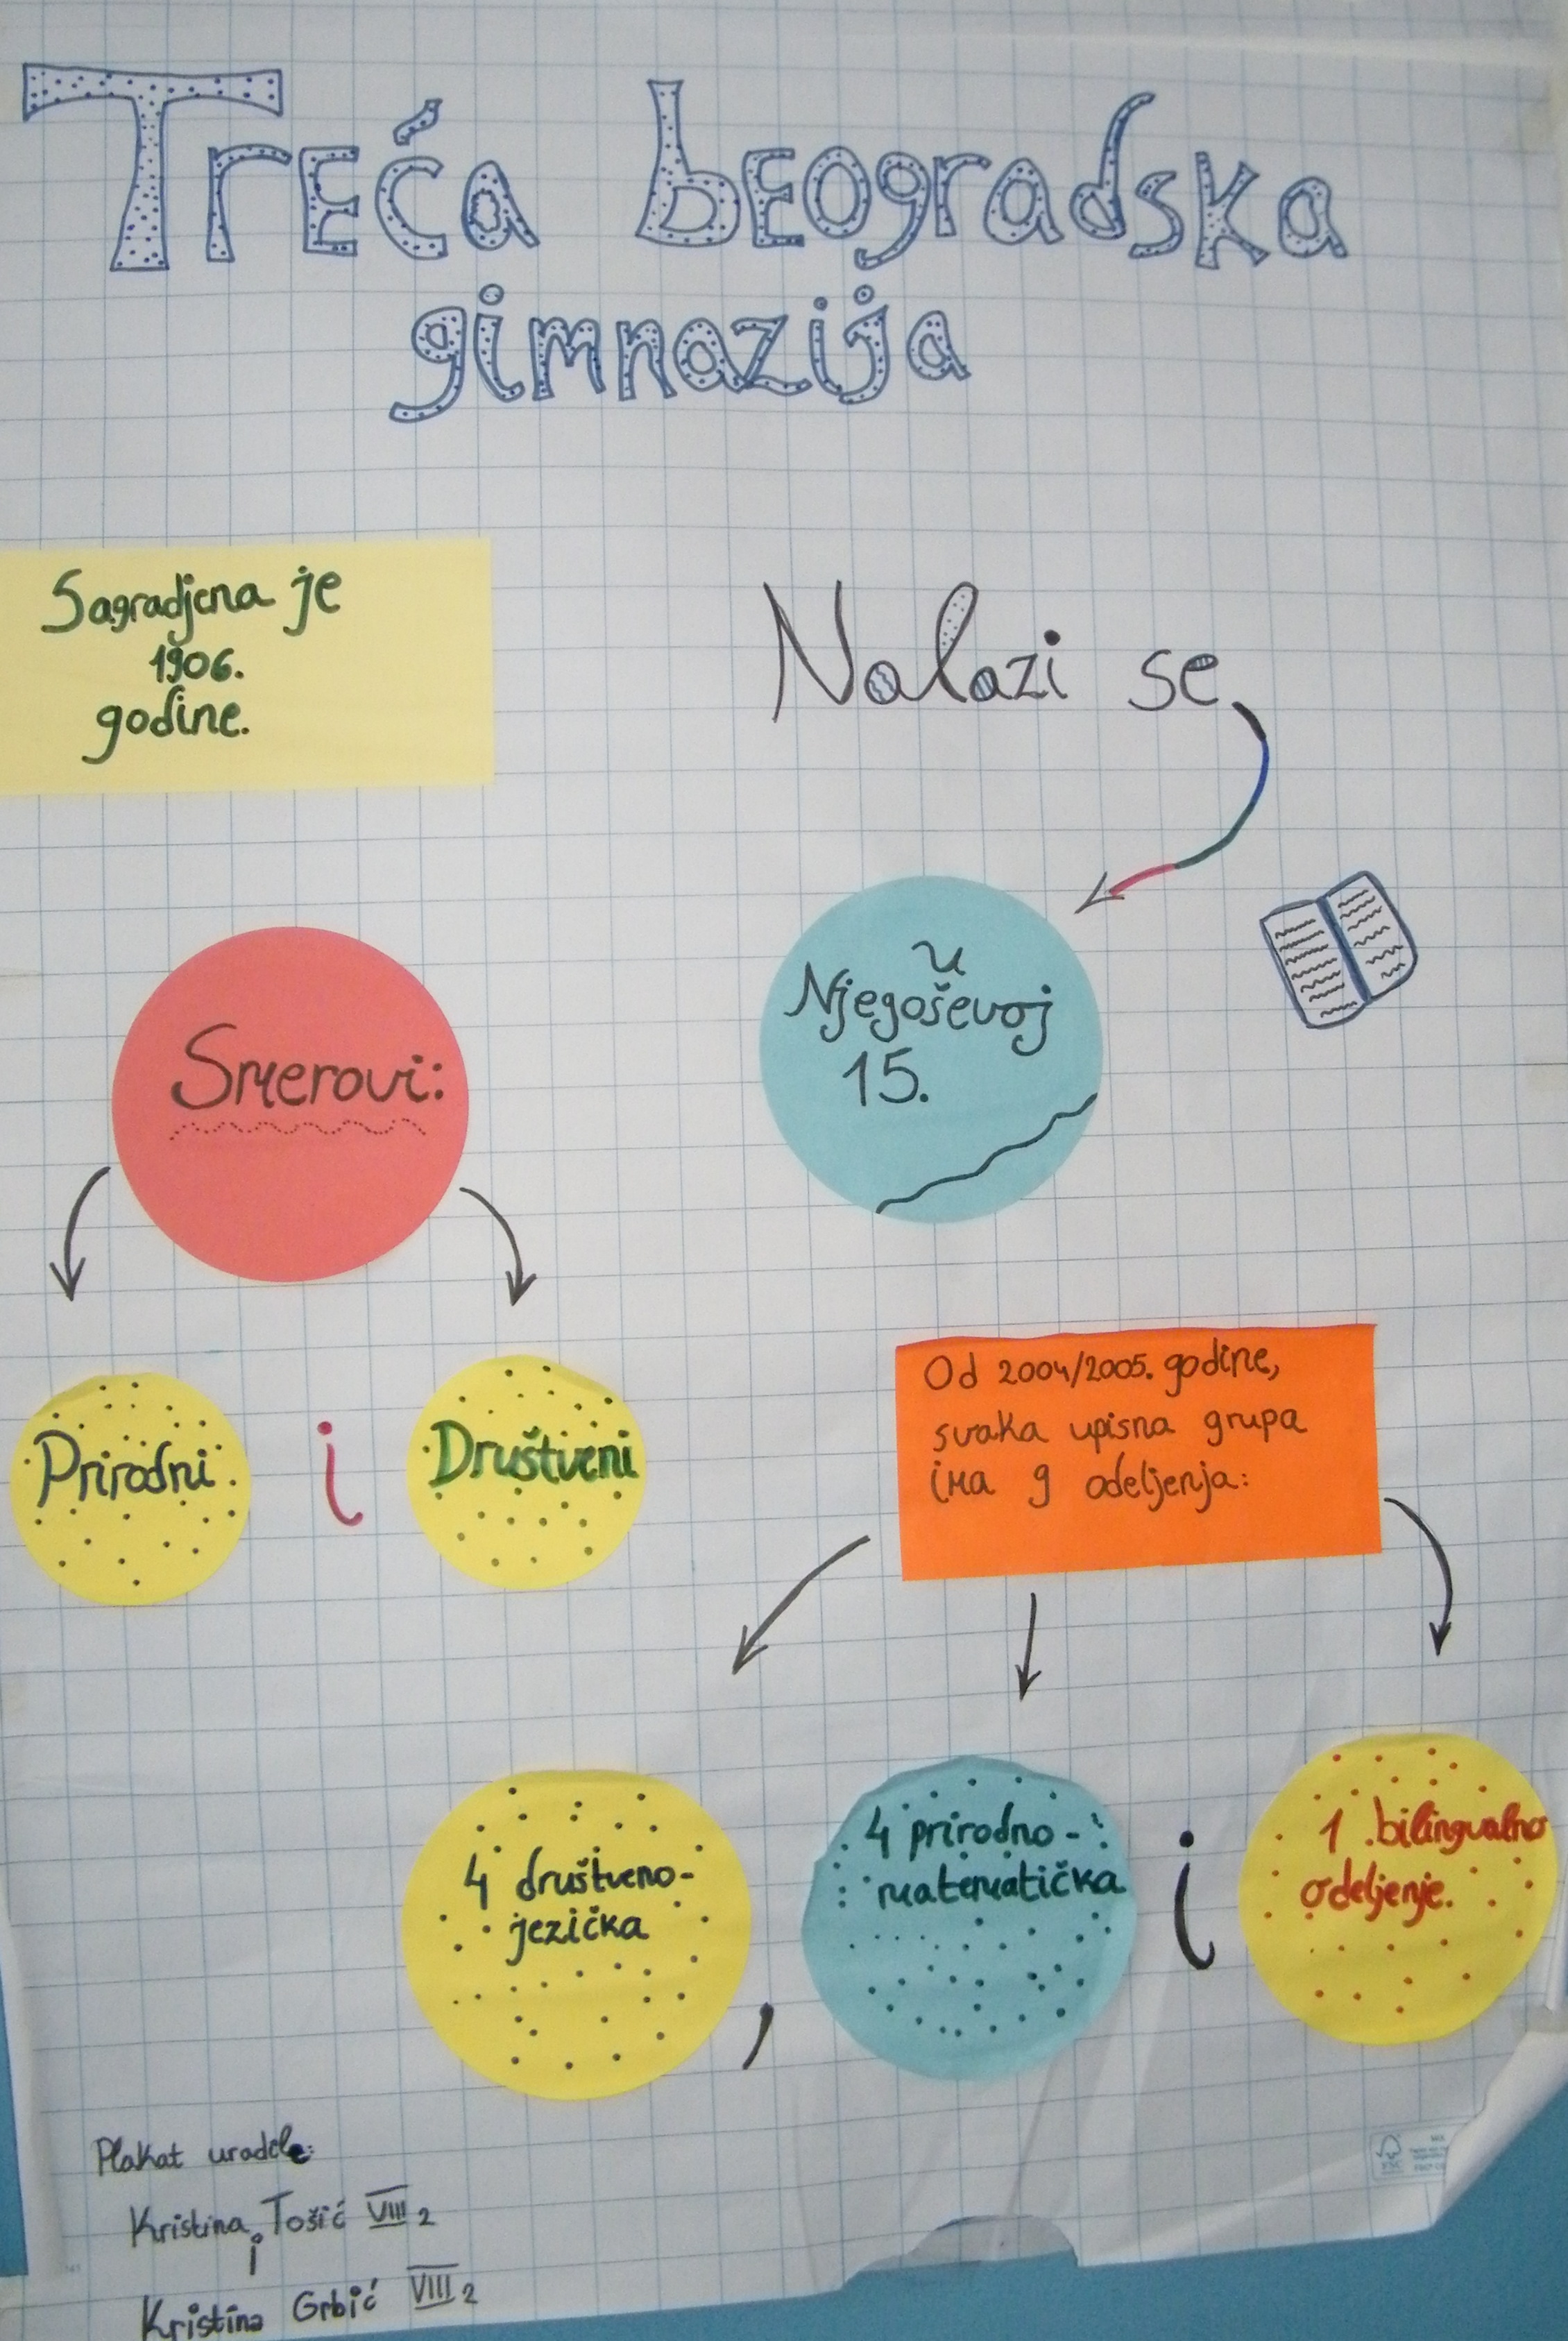 Treća beogradska
gimnazija
Sagradjena je
1906.
godine.
Nalazi se
u
Njegoševoj
15.
Smerovi:
Prirodni
i
Društveni
Od 2004/2005. godine,
svaka upisna grupa
ima 9 odeljenja:
4 društveno-
jezička
,
4 prirodno-
matematička
i
1 bilingvalno
odeljenje.
Plakat uradele:
Kristina Tošić VIII 2
i
Kristina Grbić VIII 2
FSC